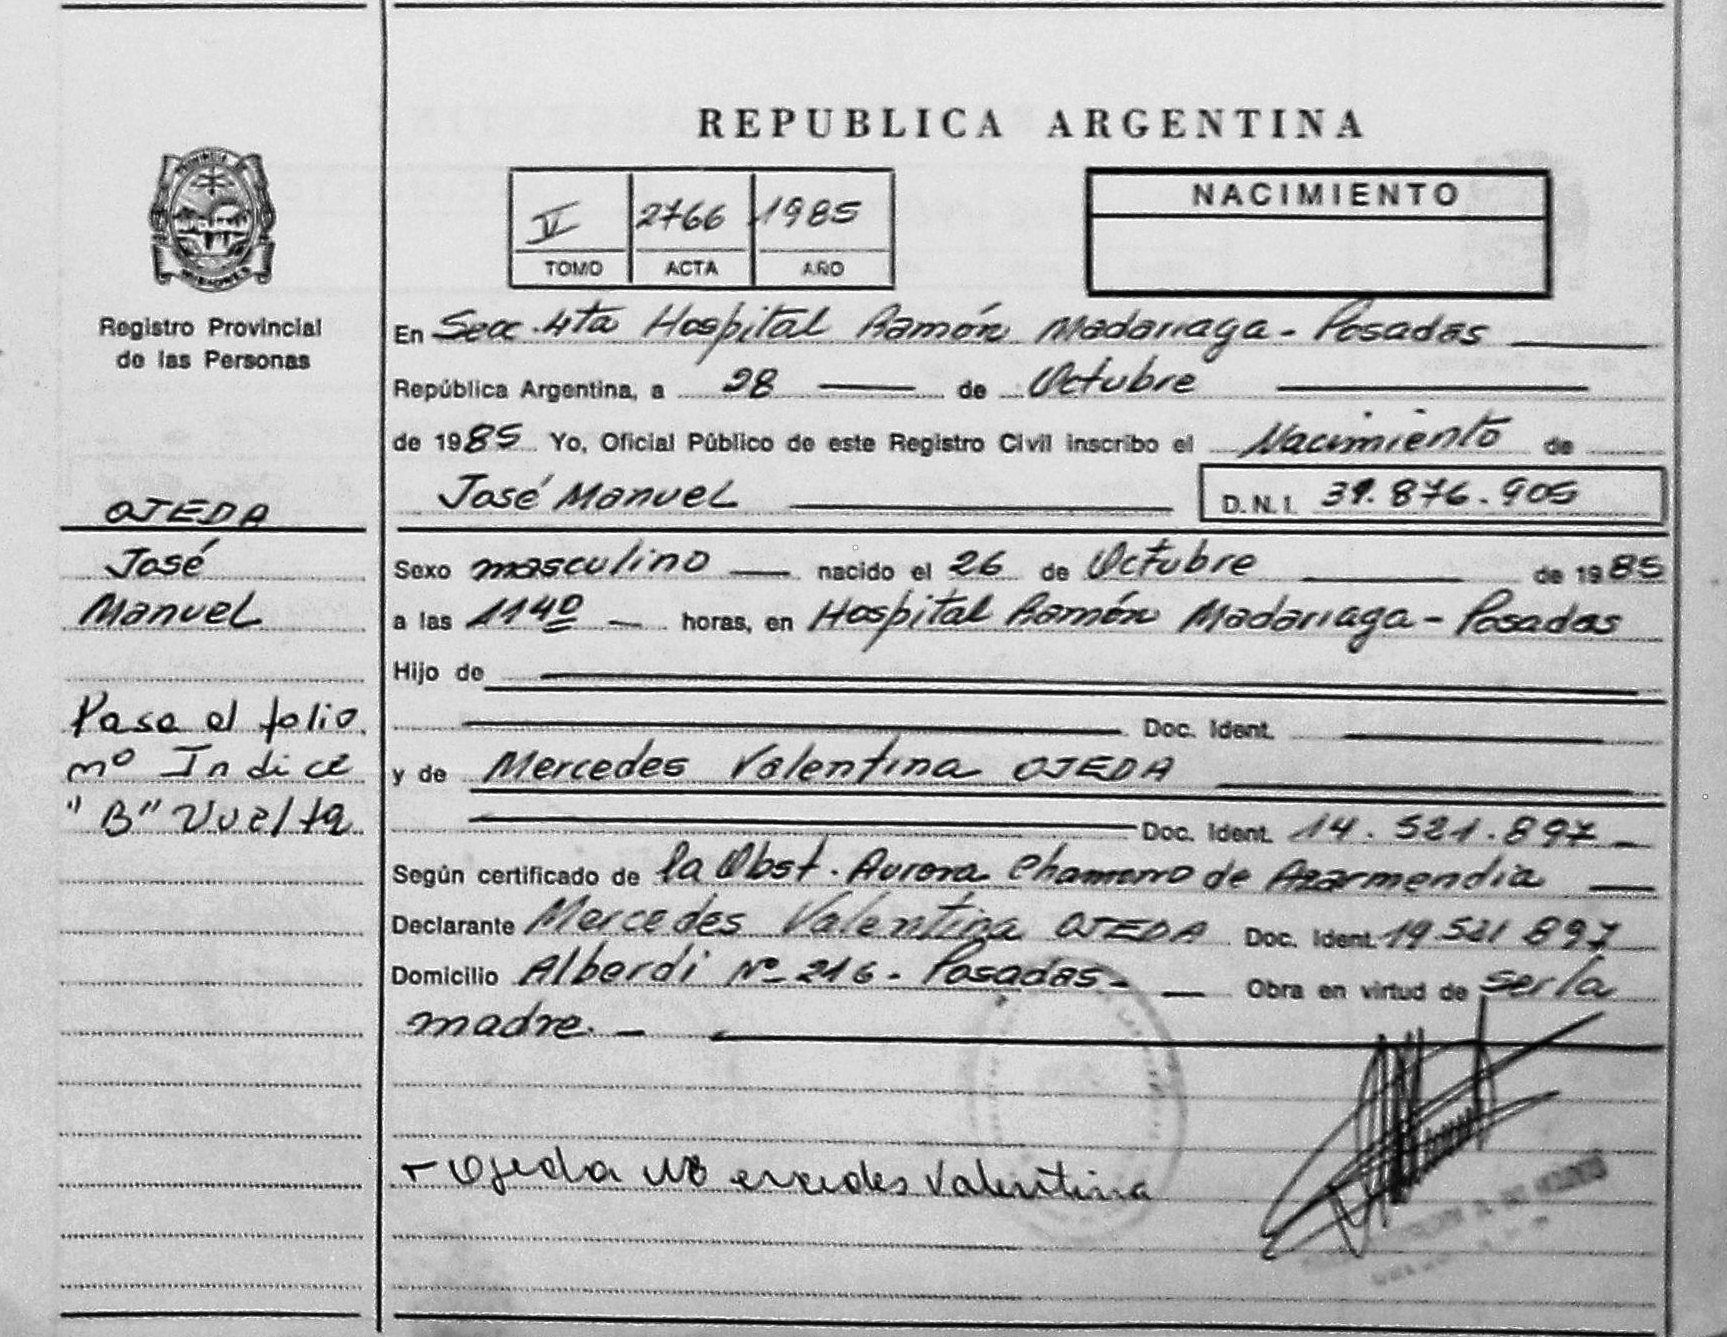 REPUBLICA ARGENTINA
V 2766 1985
TOMO ACTA AÑO
NACIMIENTO
PROVINCIA DE
MISIONES
Registro Provincial
de las Personas
OJEDA
José
Manuel
Pasa al folio
nº Indice
"B" Vuelta
En Secc. 4ta Hospital Ramón Madariaga - Posadas
República Argentina, a 28 de Octubre
de 1985 Yo, Oficial Público de este Registro Civil inscribo el Nacimiento de
José Manuel D.N.I. 31.876.905
Sexo masculino nacido el 26 de Octubre de 1985
a las 1140 horas, en Hospital Ramón Madariaga - Posadas
Hijo de
Doc. Ident.
y de Mercedes Valentina OJEDA
Doc. Ident. 14.521.897
Según certificado de la Obst. Aurora Chamorro de Azarmendia
Declarante Mercedes Valentina OJEDA Doc. Ident. 14 521 897
Domicilio Alberdi Nº 216 - Posadas - Obra en virtud de ser la
madre. -
Ojeda Mercedes Valentina